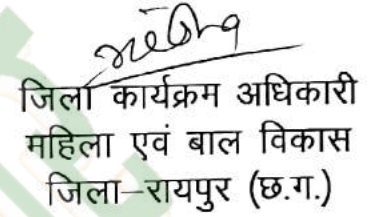 जिला कार्यक्रम अधिकारी
महिला एवं बाल विकास
जिला–रायपुर (छ.ग.)